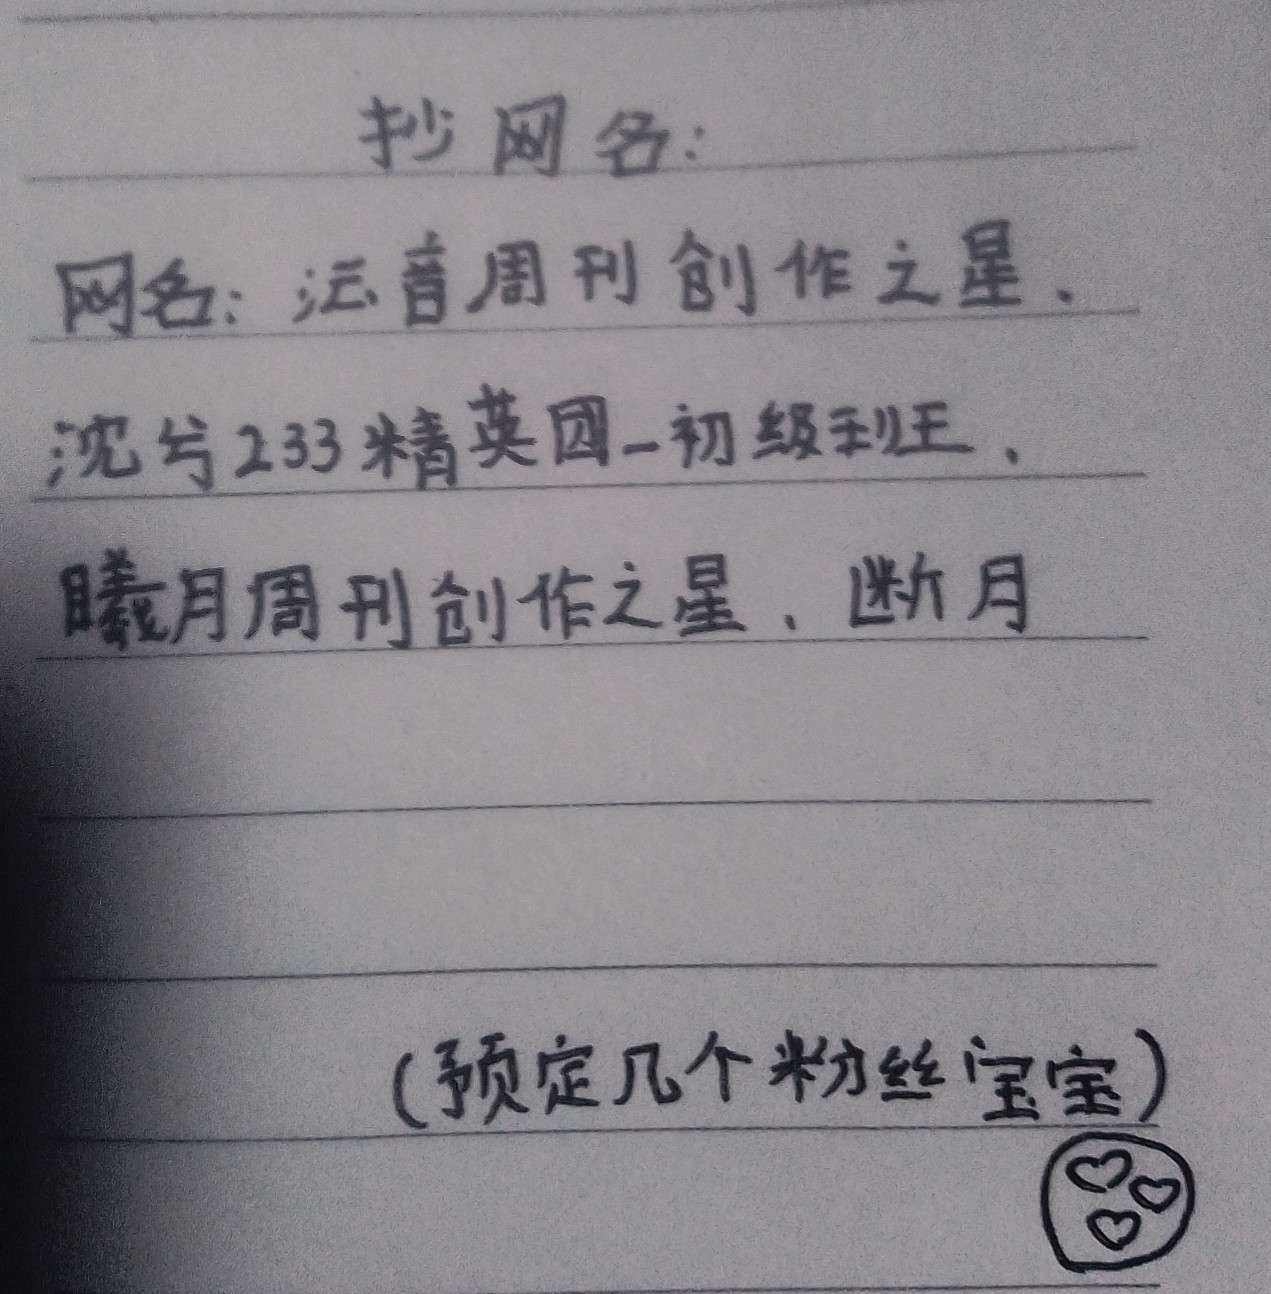 抄网名:
网名:沄音周刊创作之星、
沈兮233精英团-初级班、
曦月周刊创作之星、断月
(预定几个粉丝宝宝)